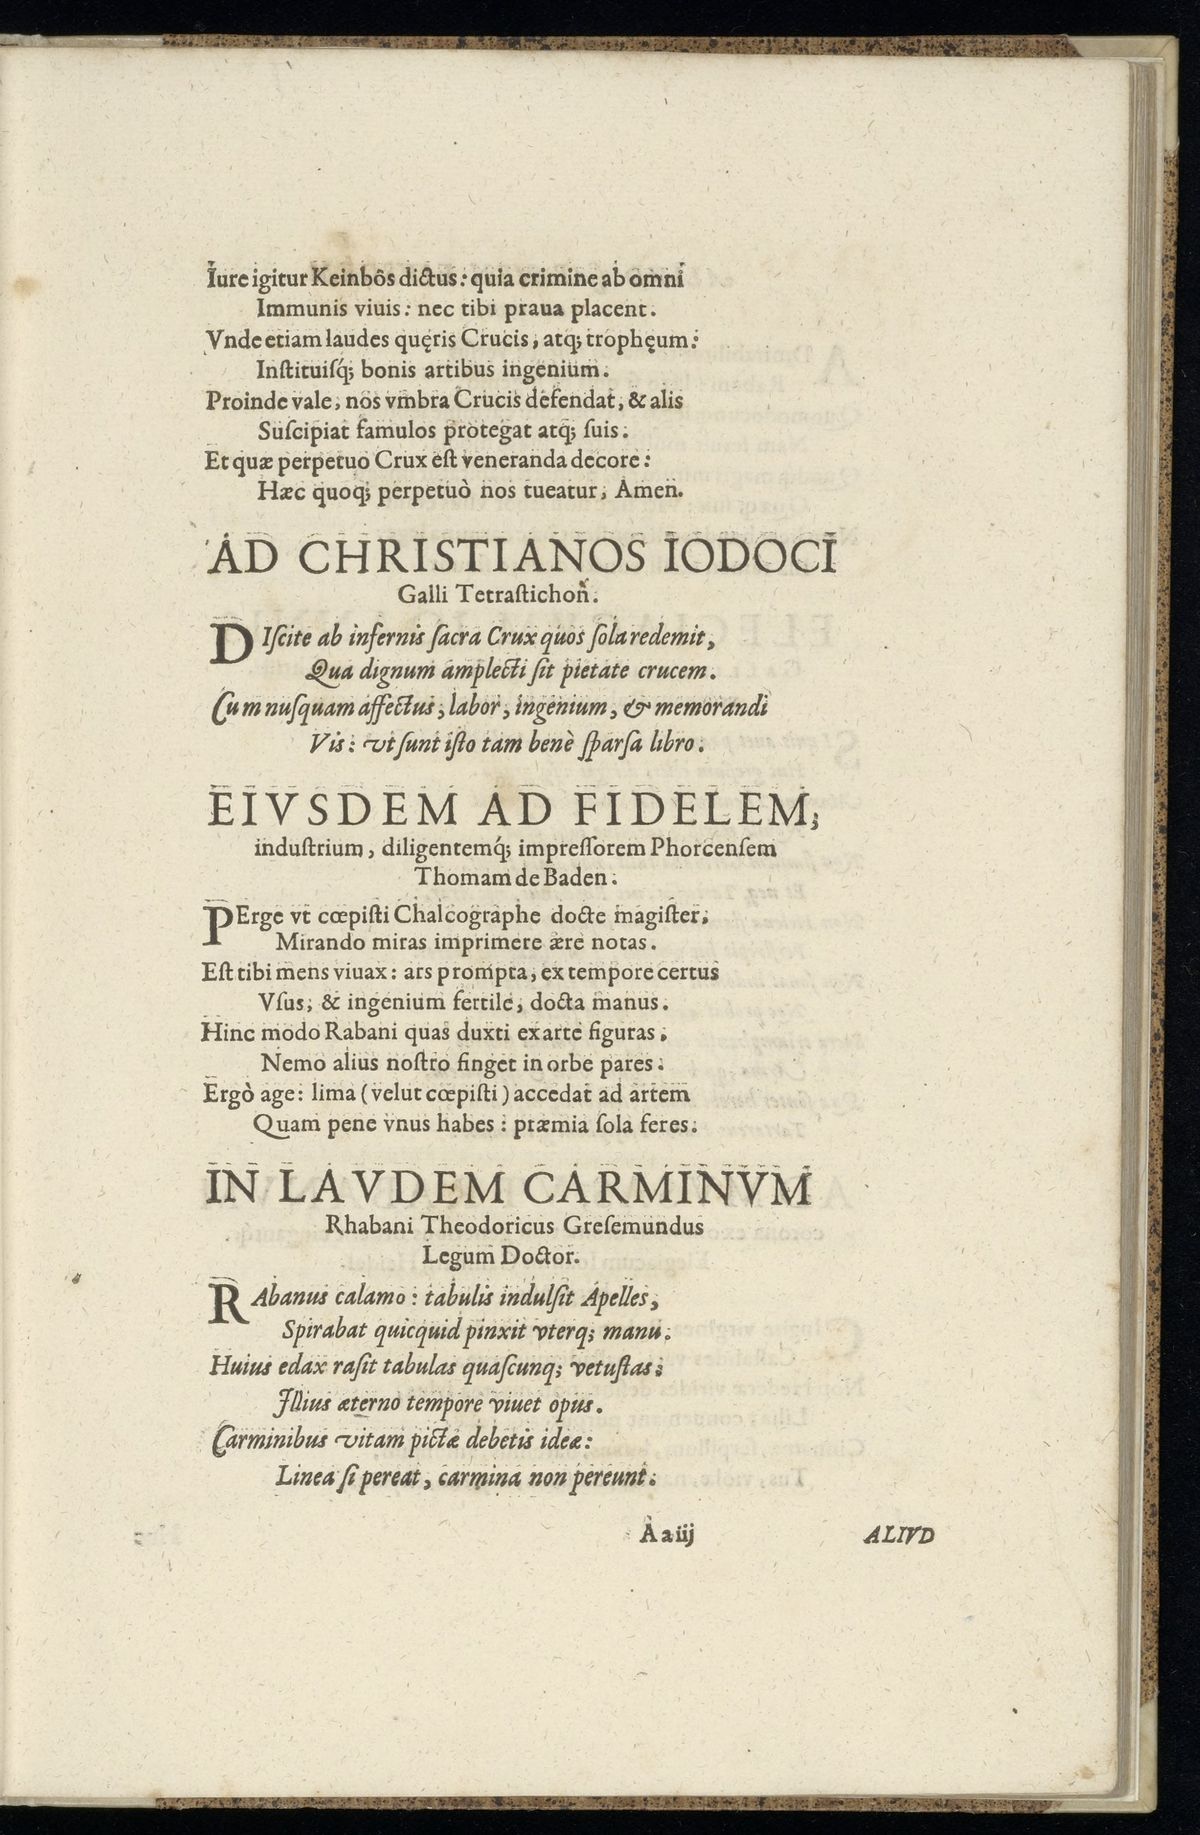 Iure igitur Keinbôs dictus: quia crimine ab omni
Immunis viuis: nec tibi praua placent.
Vnde etiam laudes quęris Crucis, atq; trophęum:
Instituisq́; bonis artibus ingenium.
Proinde vale, nos vmbra Crucis defendat, & alis
Suscipiat famulos protegat atq; suis.
Et quæ perpetuo Crux est veneranda decore:
Hæc quoq; perpetuò nos tueatur, Amen.
AD CHRISTIANOS IODOCI
Galli Tetrastichon.
DIscite ab infernis sacra Crux quos sola redemit,
Qua dignum amplecti sit pietate crucem.
Cum nusquam affectus, labor, ingenium, & memorandi
Vis: vt sunt isto tam benè sparsa libro.
EIVSDEM AD FIDELEM,
industrium, diligentemq́; impressorem Phorcensem
Thomam de Baden.
PErge vt cœpisti Chalcographe docte magister,
Mirando miras imprimere ære notas.
Est tibi mens viuax: ars prompta, ex tempore certus
Vsus, & ingenium fertile, docta manus.
Hinc modo Rabani quas duxti ex arte figuras,
Nemo alius nostro finget in orbe pares.
Ergò age: lima (velut cœpisti) accedat ad artem
Quam pene vnus habes: præmia sola feres.
IN LAVDEM CARMINVM
Rhabani Theodoricus Gresemundus
Legum Doctor.
RAbanus calamo: tabulis indulsit Apelles,
Spirabat quicquid pinxit vterq; manu.
Huius edax rasit tabulas quascunq; vetustas;
Illius æterno tempore viuet opus.
Carminibus vitam pictæ debetis ideæ:
Linea si pereat, carmina non pereunt.
A a iij ALIVD